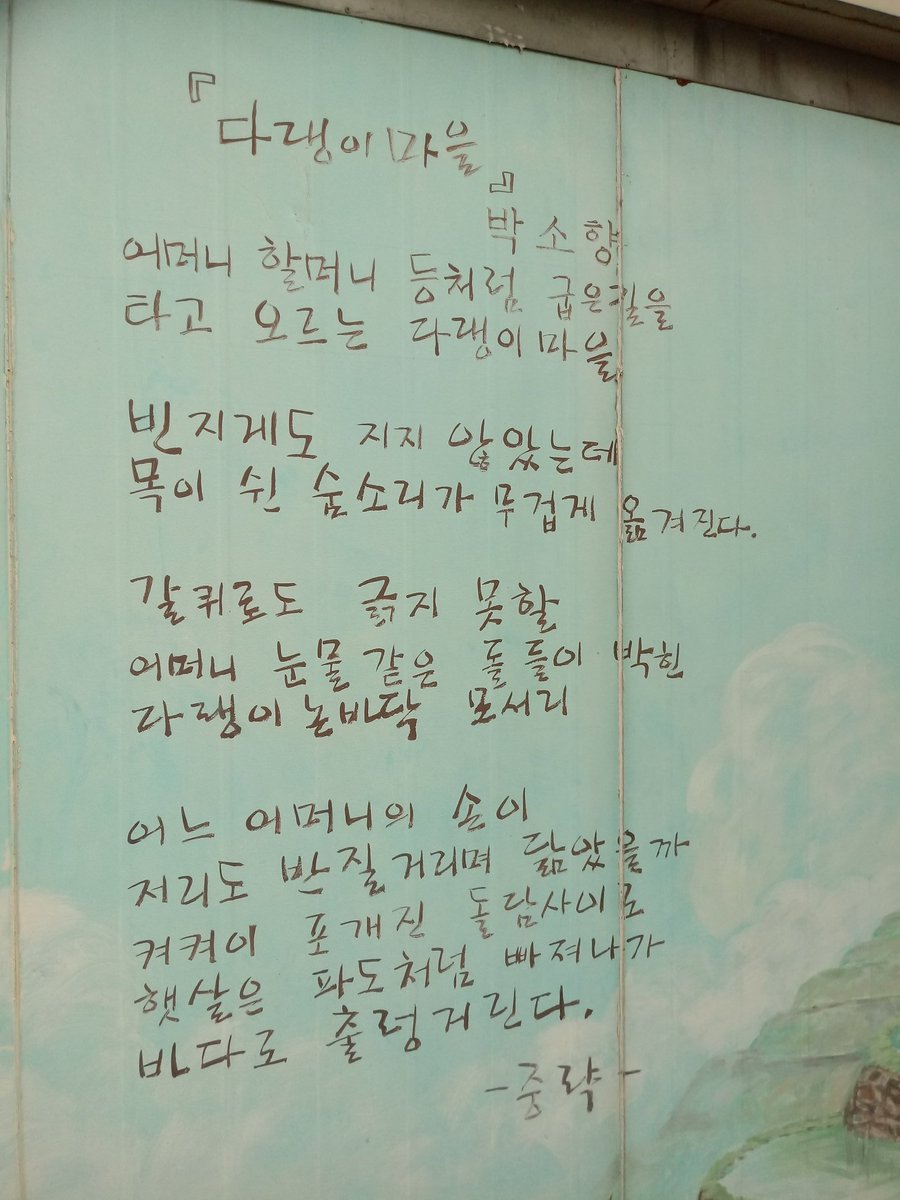 『다랭이마을』
박소향
어머니 할머니 등처럼 굽은길을
타고 오르는 다랭이마을
빈지게도 지지 않았는데
목이 쉰 숨소리가 무겁게 옮겨진다.
갈퀴로도 긁지 못할
어머니 눈물같은 돌들이 박힌
다랭이논바닥 모서리
어느 어머니의 손이
저리도 반질거리며 닮았을까
켜켜이 포개진 돌담사이로
햇살은 파도처럼 빠져나가
바다로 출렁거린다.
-중략-